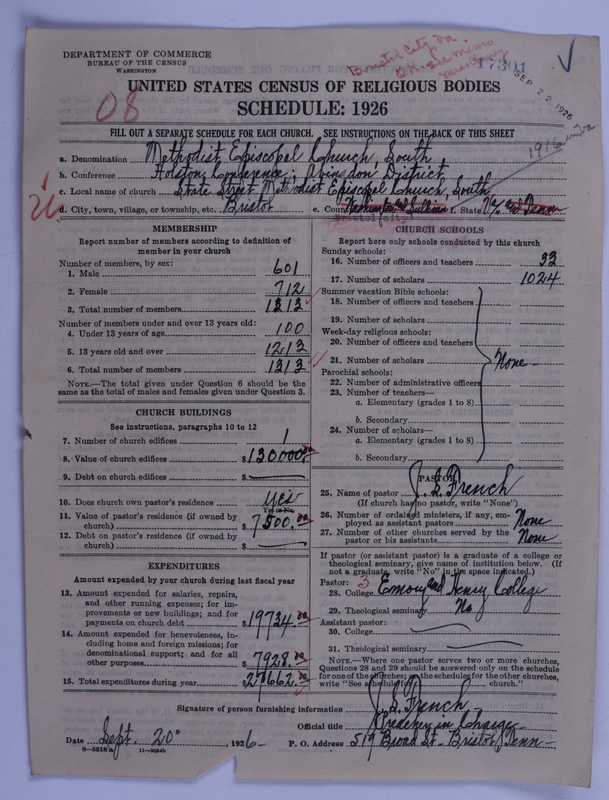 DEPARTMENT OF COMMERCE
BUREAU OF THE CENSUS
WASHINGTON
Bristol City, Va.
17301
SEP 22 1926
08
UNITED STATES CENSUS OF RELIGIOUS BODIES
SCHEDULE: 1926
1916
FILL OUT A SEPARATE SCHEDULE FOR EACH CHURCH. SEE INSTRUCTIONS ON THE BACK OF THIS SHEET
a. Denomination Methodist Episcopal Church, South
b. Conference Holston Conference; Abingdon District
c. Local name of church State Street Methodist Episcopal Church, South
d. City, town, village, or township, etc. Bristol e. County Washington and Sullivan f. State Va, and Tenn
Bristol City
MEMBERSHIP
Report number of members according to definition of member in your church
Number of members, by sex:
1. Male 601
2. Female 712
3. Total number of members 1313
Number of members under and over 13 years old:
4. Under 13 years of age 100
5. 13 years old and over 1213
6. Total number of members 1313
NOTE.—The total given under Question 6 should be the same as the total of males and females given under Question 3.
CHURCH BUILDINGS
See instructions, paragraphs 10 to 12
7. Number of church edifices 1
8. Value of church edifices $130000.00
9. Debt on church edifices $
10. Does church own pastor's residence yes
Yes or No
11. Value of pastor's residence (if owned by church) $7500.00
12. Debt on pastor's residence (if owned by church) $
EXPENDITURES
Amount expended by your church during last fiscal year
13. Amount expended for salaries, repairs, and other running expenses; for improvements or new buildings; and for payments on church debt $19734.00
14. Amount expended for benevolences, including home and foreign missions; for denominational support; and for all other purposes $7928.00
15. Total expenditures during year $27662.00
CHURCH SCHOOLS
Report here only schools conducted by this church
Sunday schools:
16. Number of officers and teachers 33
17. Number of scholars 1024
Summer vacation Bible schools:
18. Number of officers and teachers
19. Number of scholars
Week-day religious schools:
20. Number of officers and teachers
21. Number of scholars None
Parochial schools:
22. Number of administrative officers
23. Number of teachers—
a. Elementary (grades 1 to 8)
b. Secondary
24. Number of scholars—
a. Elementary (grades 1 to 8)
b. Secondary
PASTOR
25. Name of pastor J. S. French
(If church has no pastor, write "None")
26. Number of ordained ministers, if any, employed as assistant pastors None
27. Number of other churches served by the pastor or his assistants None
If pastor (or assistant pastor) is a graduate of a college or theological seminary, give name of institution below. (If not a graduate, write "No" in the space indicated.)
Pastor: 3
28. College Emory and Henry College
29. Theological seminary No
Assistant pastor:
30. College
31. Theological seminary
NOTE.—Where one pastor serves two or more churches, Questions 28 and 29 should be answered only on the schedule for one of the churches; on the schedules for the other churches, write "See schedule for church."
Signature of person furnishing information J. S. French
Official title Preacher in Charge
Date Sept. 20" , 1926 P. O. Address 519 Broad St- Bristol, Tenn